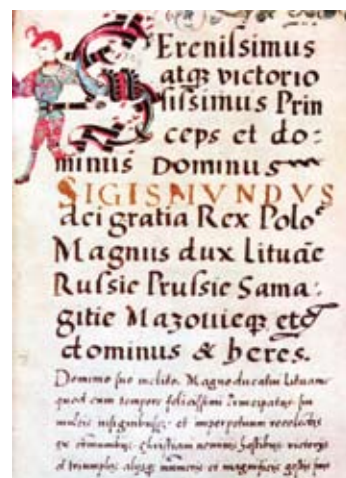 Sereniſsimus
atqꝫ victorio
ſiſsimus Prin
ceps et do:
minus Dominus
SIGISMVNDVS
dei gratia Rex Poloᵉ
Magnus dux Lituāe
Ruſsie Pruſsie Sama:
gitie Mazouieqꝫ etc
dominus & heres.
Domino ſuo inclito. Magnoducatui Lituanie
quod cum tempore feliciſsimi Principatus ſui
multis inſignibuſqꝫ et imperpetuum recolendis
ex communibus Chriſtiani nominis hoſtibus victoryſ
et triumphis alyſqꝫ numeris et magnificis geſtis